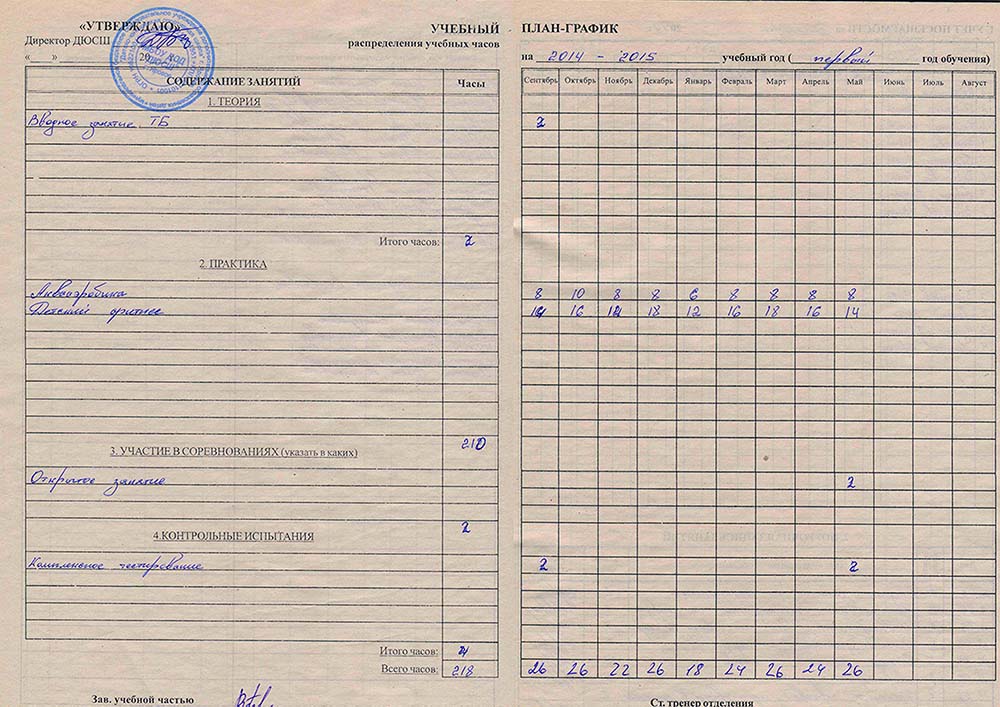 «УТВЕРЖДАЮ» УЧЕБНЫЙ ПЛАН-ГРАФИК
Директор ДЮСШ распределения учебных часов на 2014 - 2015 учебный год ( первый год обучения)
« » 20
СОДЕРЖАНИЕ ЗАНЯТИЙ Часы Сентябрь Октябрь Ноябрь Декабрь Январь Февраль Март Апрель Май Июнь Июль Август
1. ТЕОРИЯ
Вводное занятие. ТБ 2
Итого часов: 2
2. ПРАКТИКА
Аквааэробика 8 10 8 8 6 8 8 8 8
Детский фитнес 14 16 14 18 12 16 18 16 14
210
3. УЧАСТИЕ В СОРЕВНОВАНИЯХ (указать в каких)
Открытое занятие 2
2
4.КОНТРОЛЬНЫЕ ИСПЫТАНИЯ
Комплексное тестирование 2 2
Итого часов: 4
Всего часов: 218 26 26 22 26 18 24 26 24 26
Зав. учебной частью Ст. тренер отделения